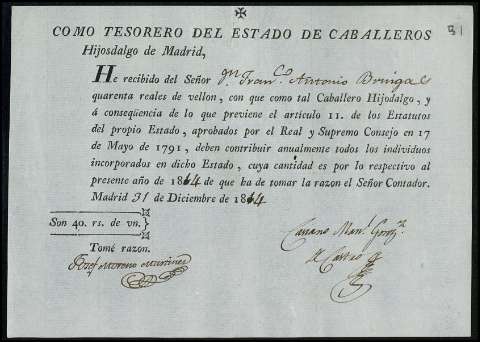 31
COMO TESORERO DEL ESTADO DE CABALLEROS
Hijosdalgo de Madrid,
He recibido del Señor Dn. Franco. Antonio Bringas
quarenta reales de vellon, con que como tal Caballero Hijodalgo, y
á conseqüencia de lo que previene el articulo 11. de los Estatutos
del propio Estado, aprobados por el Real y Supremo Consejo en 17
de Mayo de 1791, deben contribuir anualmente todos los individuos
incorporados en dicho Estado, cuya cantidad es por lo respectivo al
presente año de 1814 de que ha de tomar la razon el Señor Contador.
Madrid 31 de Diciembre de 1814
Son 40. rs. de vn.
Tomé razon.
Josef Moreno Martinez
Manl.
de Castro